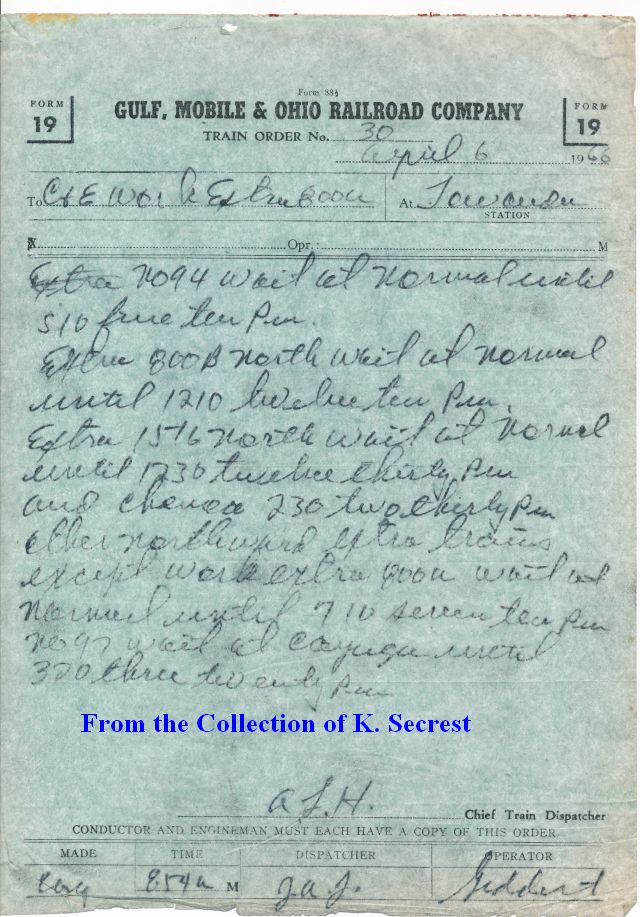 Form 88½
FORM 19
GULF, MOBILE & OHIO RAILROAD COMPANY
FORM 19
TRAIN ORDER No. 30
April 6 1966
To C&E Work Extra 800A At Towanda
STATION
X Opr.: M
Extra No 94 wait at Normal until
510 five ten Pm.
Extra 800B North wait at Normal
until 1210 twelve ten Pm.
Extra 1516 North wait at Normal
until 1230 twelve thirty Pm
and Chenoa 230 two thirty Pm
other northward extra trains
except work extra 800A wait at
Normal until 710 seven ten Pm
No 97 wait at Cayuga until
320 three twenty Pm
From the Collection of K. Secrest
Chief Train Dispatcher
CONDUCTOR AND ENGINEMAN MUST EACH HAVE A COPY OF THIS ORDER
MADE TIME DISPATCHER OPERATOR
854a M